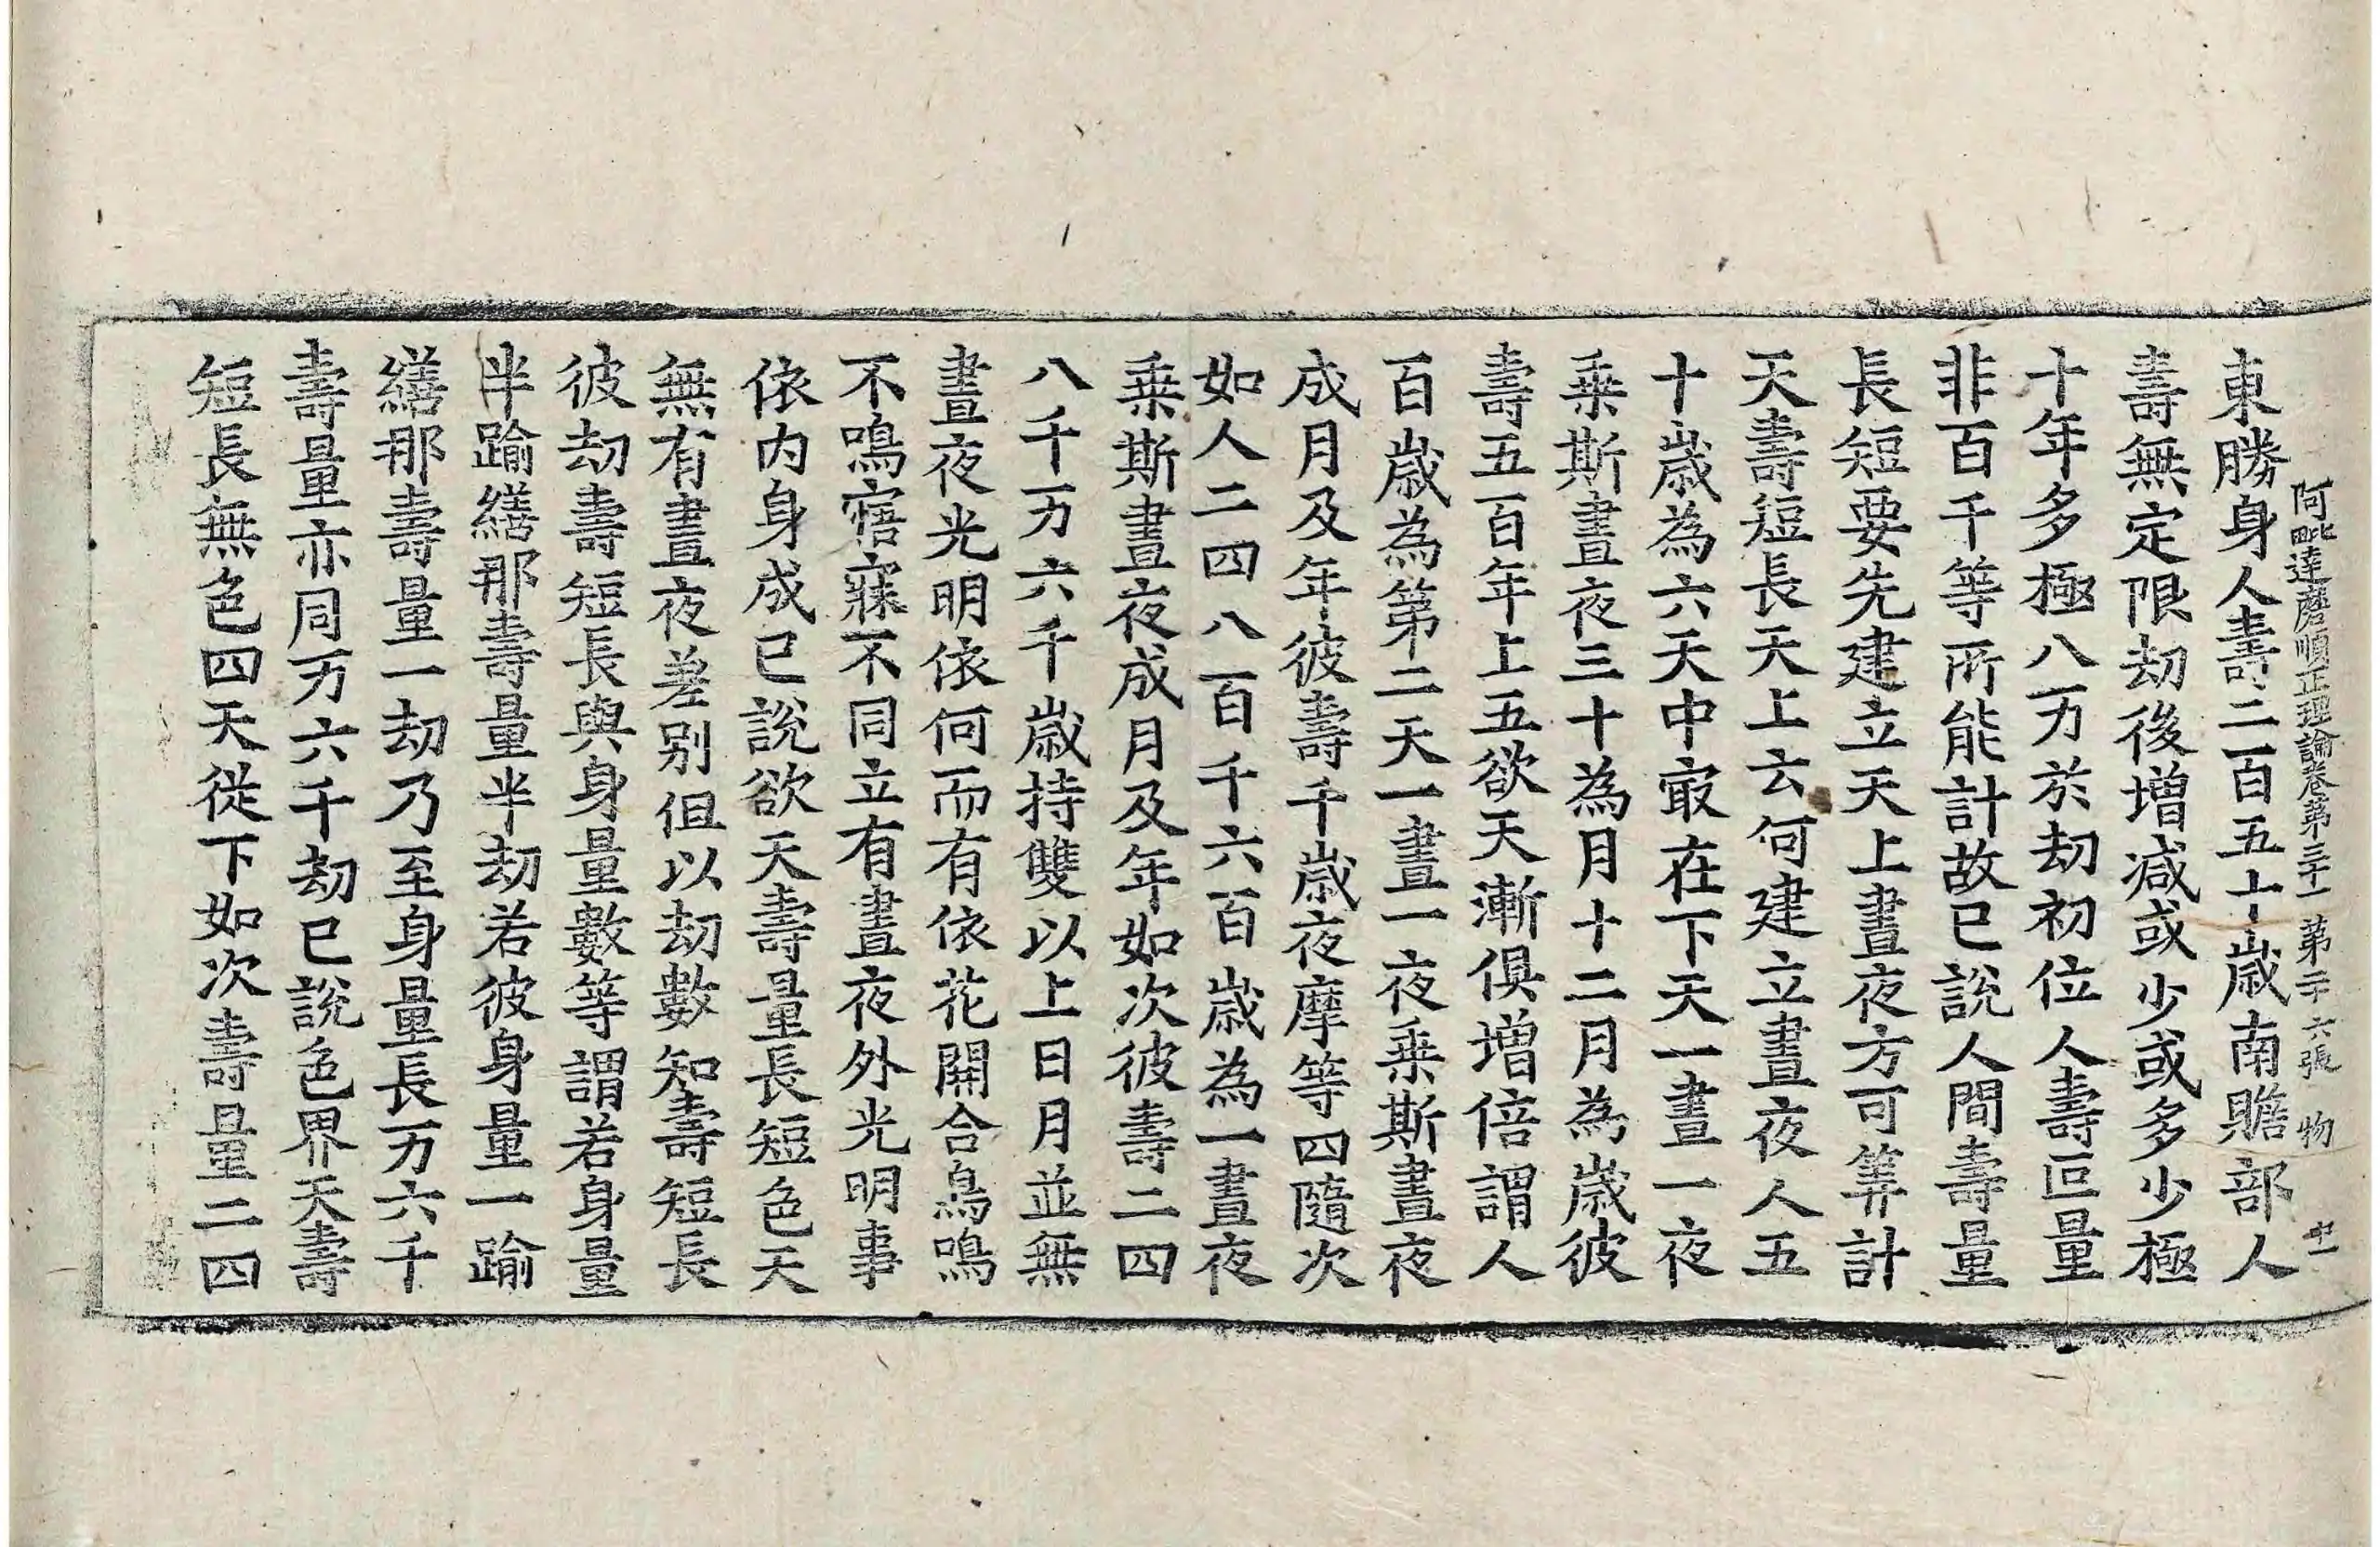 阿毗達磨順正理論卷第三十一 第二十六張 物
東勝身人壽二百五十歲南贍部人
壽無定限劫後增減或少或多少極
十年多極八万於劫初位人壽叵量
非百千等所能計故已說人間壽量
長短要先建立天上晝夜方可筭計
天壽短長天上云何建立晝夜人五
十歲為六天中㝡在下天一晝一夜
乘斯晝夜三十為月十二月為歲彼
壽五百年上五欲天漸俱增倍謂人
百歲為第二天一晝一夜乘斯晝夜
成月及年彼壽千歲夜摩等四隨次
如人二四八百千六百歲為一晝夜
乘斯晝夜成月及年如次彼壽二四
八千万六千歲持雙以上日月並無
晝夜光明依何而有依花開合鳥鳴
不鳴寤寐不同立有晝夜外光明事
依内身成已說欲天壽量長短色天
無有晝夜差别但以劫數知壽短長
彼劫壽短長與身量數等謂若身量
半踰繕那壽量半劫若彼身量一踰
繕那壽量一劫乃至身量長万六千
壽量亦同万六千劫已說色界天壽
短長無色四天從下如次壽量二四